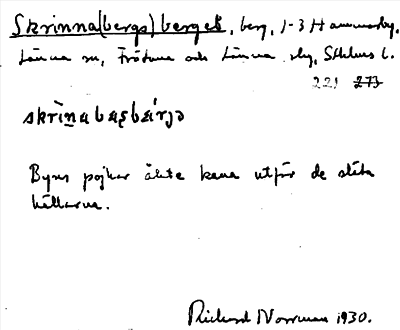 Skrinna(bergs)berget, berg, 1-3 Hammarby,
Länna sn, Frötuna och Länna slg, Sthlms l.
221 273
skrìnabasbærjə
Byns pojkar åkte kana utför de släta
hällarna.
Richard Norrman 1930.